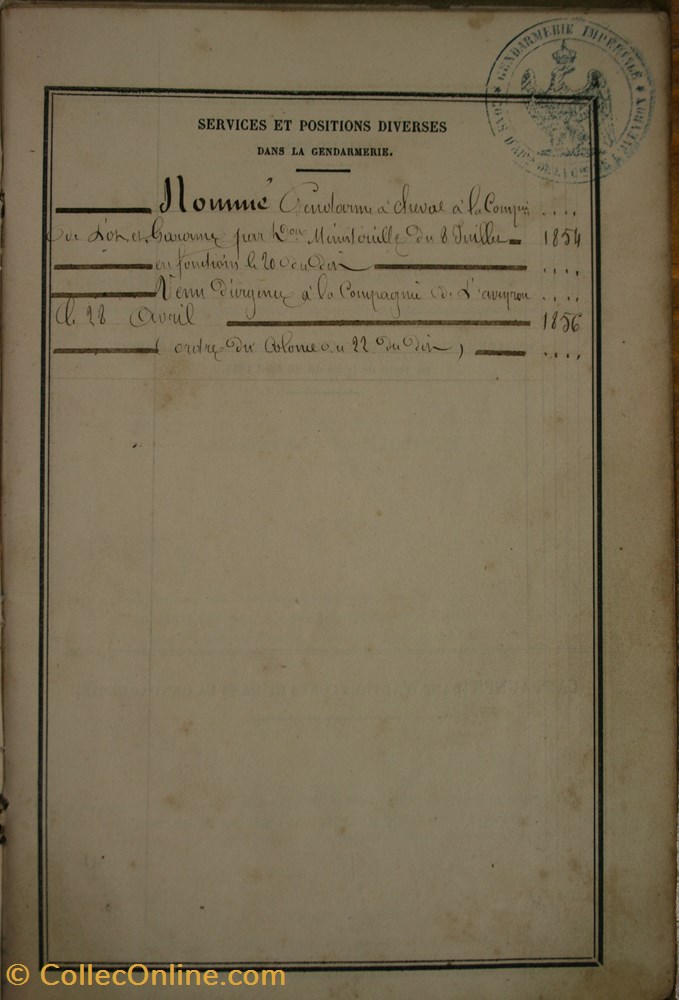 GENDARMERIE IMPÉRIALE
SERVICES ET POSITIONS DIVERSES
DANS LA GENDARMERIE.
Nommé Gendarme à cheval à la Compie ....
de Lot et Garonne par Don Ministérielle du 8 Juillet 1854
en fonctions le 20 du dit ....
Venu d'urgence à la Compagnie de L'aveyron ....
le 28 Avril 1856
( ordre du Colonel du 22 du dit ) ....
© CollecOnline.com